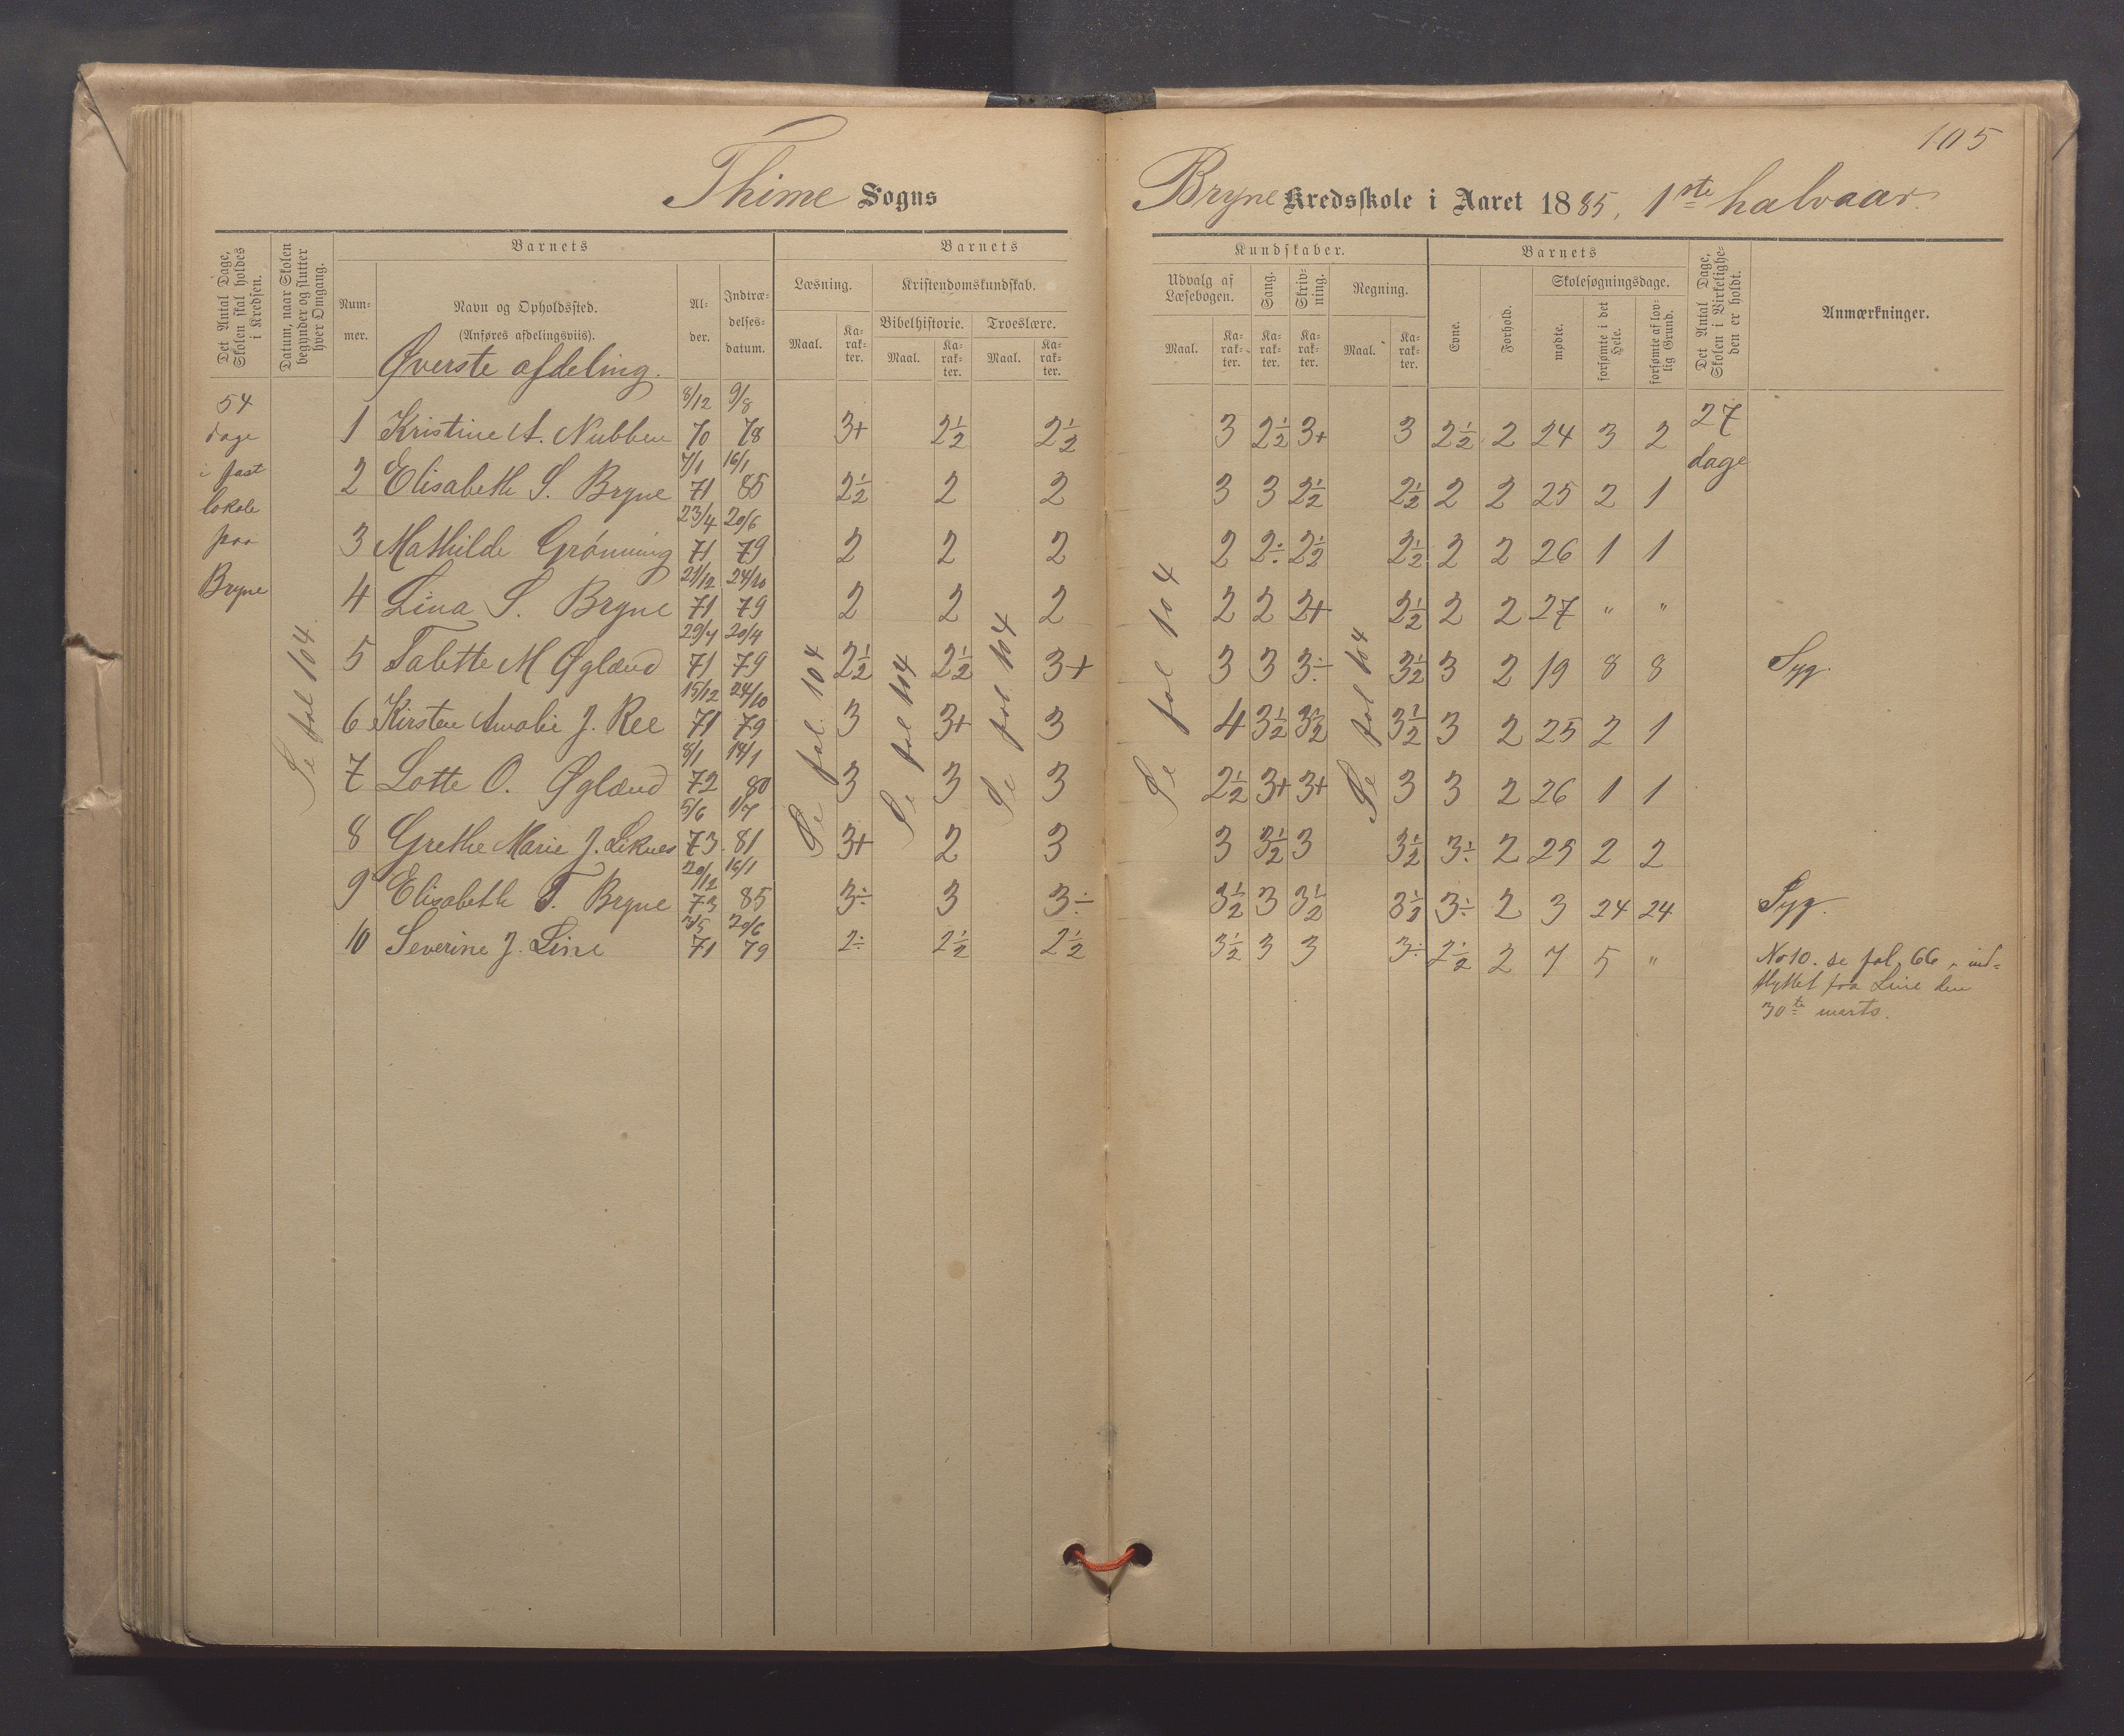 105
Thime Sogns
Bryne Kredsskole i Aaret 1885, 1ste halvaar.
Det Antal Dage, Skolen skal holdes i Kredsen.
Datum, naar Skolen begynder og slutter hver Omgang.
Barnets
Num-
mer.
Navn og Opholdssted.
(Anføres afdelingsviis).
Al-
der.
Indtræ-
delses-
datum.
Barnets
Læsning.
Maal.
Ka-
rak-
ter.
Kristendomskundskab.
Bibelhistorie.
Maal.
Ka-
rak-
ter.
Troeslære.
Maal.
Ka-
rak-
ter.
Kundskaber.
Udvalg af
Læsebogen.
Maal.
Ka-
rak-
ter.
Sang.
Ka-
rak-
ter.
Skriv-
ning.
Ka-
rak-
ter.
Regning.
Maal.
Ka-
rak-
ter.
Barnets
Evne.
Forhold.
Skolesøgningsdage.
mødte.
forsømte i det Hele.
forsømte af lov-
lig Grund.
Det Antal Dage, Skolen i Virkelighe-
den er holdt.
Anmærkninger.
Øverste afdeling.
54
dage
i fast
lokale
paa
Bryne
Se fol 104.
Se fol. 104
Se fol 104
Se fol 104
Se fol 104
Se fol 104
27
dage
1 Kristine A. Nubben 8/12 70 9/8 78 3+ 2½ 2½ 3 2½ 3+ 3 2½ 2 24 3 2
2 Elisabeth S. Bryne 7/1 71 16/1 85 2½ 2 2 3 3 2½ 2½ 2 2 25 2 1
3 Mathilde Grønning 23/4 71 20/6 79 2 2 2 2 2÷ 2½ 2½ 2 2 26 1 1
4 Lina S. Bryne 21/12 71 24/10 79 2 2 2 2 2 2+ 2½ 2 2 27 " "
5 Tabette M Øglænd 29/4 71 20/4 79 2½ 2½ 3+ 3 3 3÷ 3½ 3 2 19 8 8 Syg.
6 Kirsten Amalie J. Ree 15/12 71 24/10 79 3 3+ 3 4 3½ 3½ 3½ 3 2 25 2 1
7 Lotte O. Øglænd 8/1 72 14/1 80 3 3 3 2½ 3+ 3+ 3 3 2 26 1 1
8 Grethe Marie J. Liknes 5/6 73 1/7 81 3+ 2 3 3 3½ 3 3½ 3÷ 2 25 2 2
9 Elisabeth T. Bryne 20/12 73 16/1 85 3÷ 3 3÷ 3½ 3 3½ 3½ 3÷ 2 3 24 24 Syg.
10 Severine J. Line 71 20/6 79 2÷ 2½ 2½ 3½ 3 3 3÷ 2½ 2 7 5 " No 10. se fol. 66 - ind-
flyttet fra Line den
30te marts.